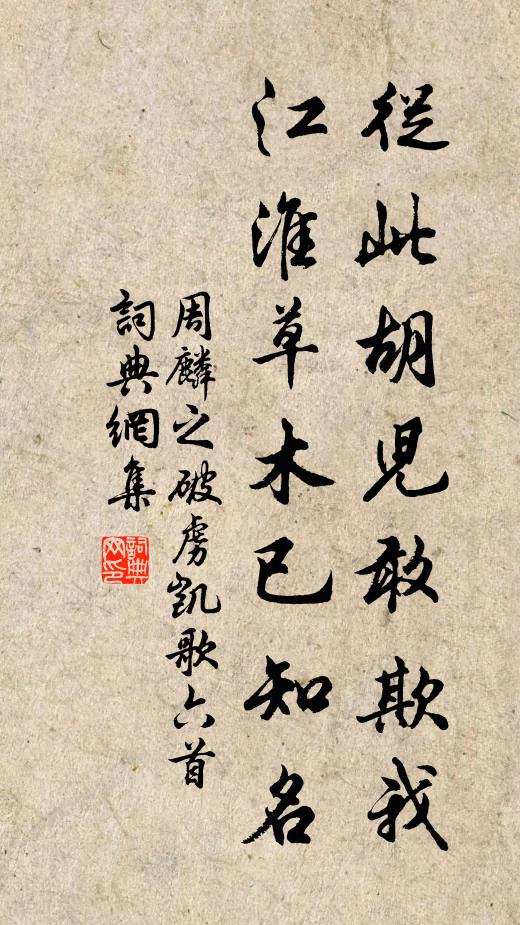 從此胡児敢欺我
江淮草木已知名
周麟之破虜凱歌六首
詞典網集
詞典网印